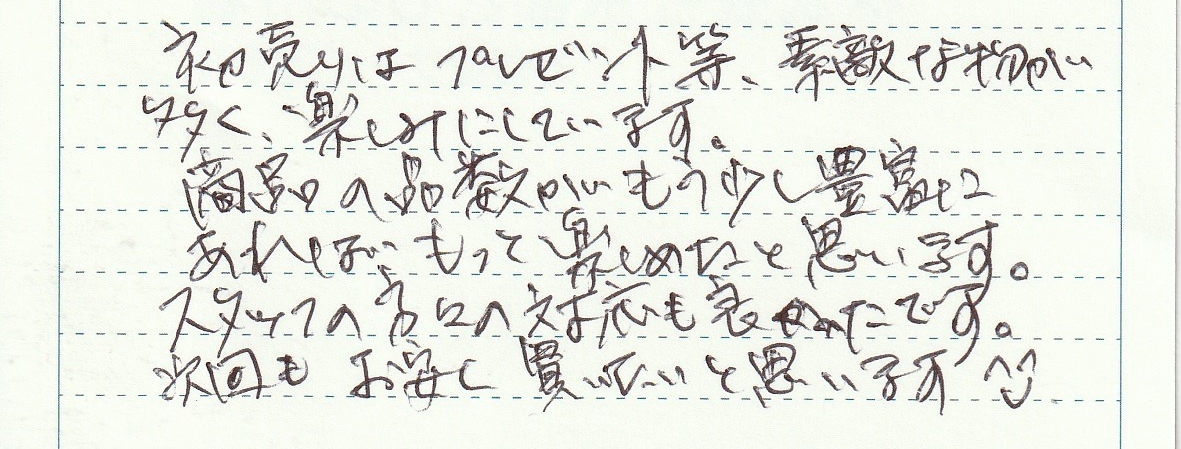 初売りはプレゼント等、素敵な物が
多く、楽しみにしています。
商品の品数がもう少し豊富に
あればもっと楽しめたと思います。
スタッフの方々の対応も良かったです。
次回もお安く買いたいと思います ^^